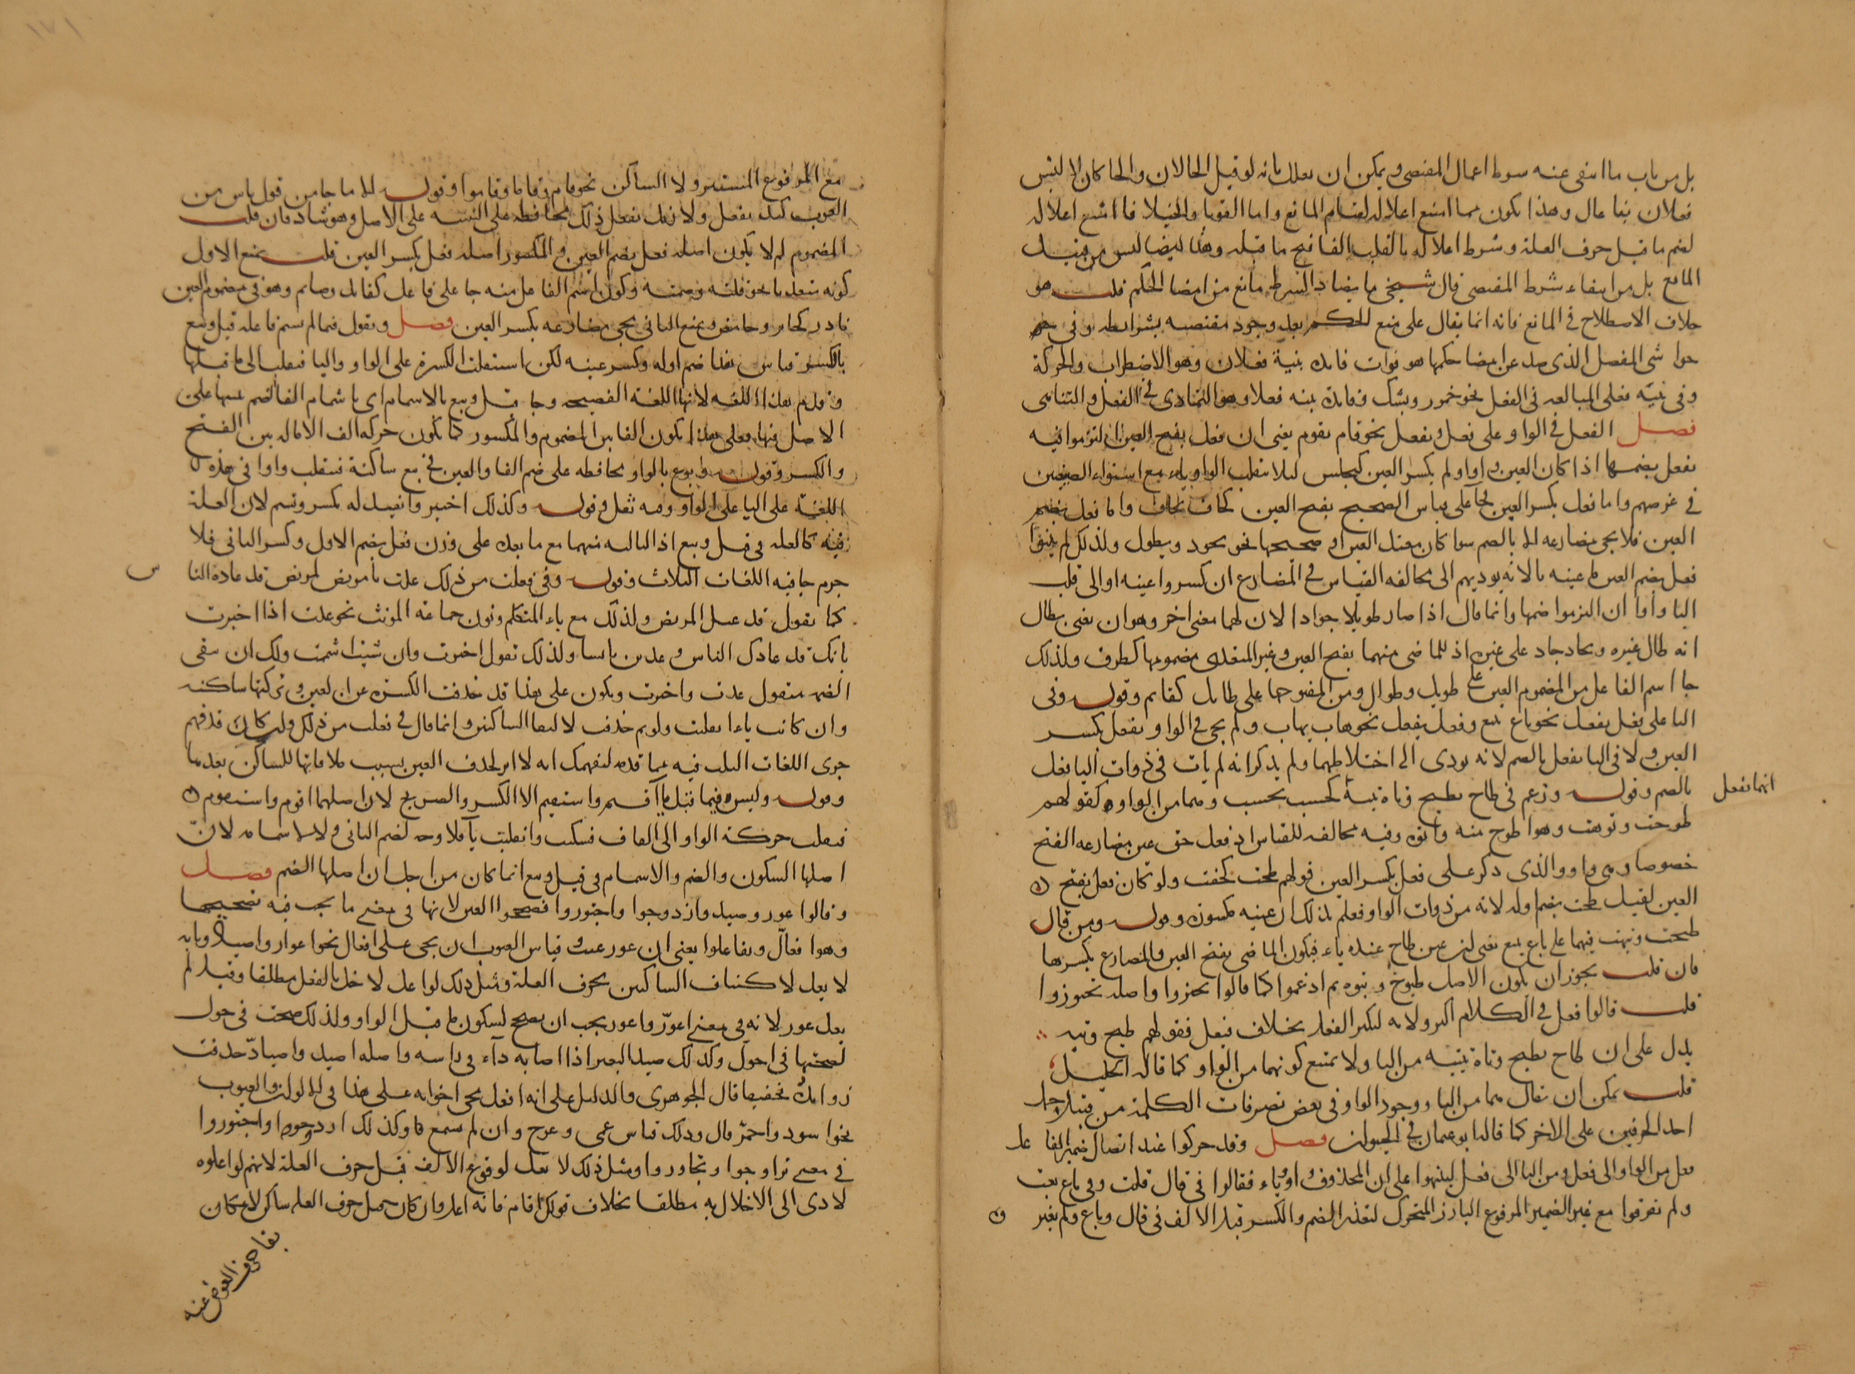 بل من باب ما انتفى عنه شرط اعمال المقتضى ويمكن ان يعلل بانه لو قيل الحالان والحاكان لالتبس
فعلان بفاعال وهذا يكون مما امتنع اعلاله لقيام المانع واما القوباء والخيلاء فامتنع اعلاله
لضم ما قبل حرف العلة وشرط اعلاله بالقلب الفا فتح ما قبله وهذا ايضا ليس من قبيل
المانع بل من انتفاء شرط المقتضى قال شيخي ما يضاد الشرط مانع من امضا الحكم قلت هو
خلاف الاصطلاح في المانع فانه انما يقال على منع للحكم بعد وجود مقتضيه بشرائطه وفي
حواشي المفصل الذي صد عن امضا حكمها هو فوات فائدة بنية فعلان وهو الاضطراب والحركة
وفي بنية فعلى المبالغة في الفعل نحو وفائدة بنية فعلاء هو التمادي في الفعل والتناهي
فصل الفعل في الواو على فعل يفعل نحو قام يقوم يعني ان فعل بفتح العين التزموا فيه
يفعل بضمها اذا كان العين واوا ولم يكسر العين كيجلس لئلا تنقلب الواو ياء مع استواء الصيغتين
في غرضهم واما فعل بكسر العين فجا على قياس الصحيح بفتح العين كخاف يخاف واما فعل بضم
العين فلا يجي مضارعه الا بالضم سوا كان معتل العين او صحيحها نحو يجود ويطول ولذلك لم يبنوا
فعل بضم العين مما عينه يا لانه يوديهم الى مخالفة القياس في المضارع ان كسروا عينه او الى قلب
اليا واوا ان التزموا ضمها وانما قال اذا صار طويلا جوادا لان لهما معنى اخر وهو ان يعني بطال
انه طال غيره وبجاد جاد على غيره اذ للماضي منهما بفتح العين وغير المتعدي مضمومها كظرف ولذلك
جا اسم الفاعل من المضموم العين على طويل وطوال ومن المفتوحها على طائل كقائم وقوله وفي
اليا على فعل يفعل نحو باع يبيع وفعل يفعل نحو هاب يهاب ولم يجي في الواو يفعل بكسر
العين ولا في اليا يفعل بالضم لانه يودي الى اختلاطهما ولم يذكر انه لم يات في ذوات اليا فعل
بالضم وقوله وزعم في طاح يطيح وتاه يتيه كحسب يحسب وهما من الواو كقولهم
طوحت وتوهت وهو اطوح منه واتوه وفيه مخالفة للقياس اذ فعل حق عين مضارعه الفتح
خصوصا وهي واو والذي دكر على فعل بكسر العين قولهم طحت كخفت ولو كان فعل بفتح
العين لقيل طحت بضم اوله لانه من ذوات الواو فعلم بذلك ان عينه مكسورة وقوله ومن قال
طيحت وتيهت فهما على باع يبيع يعني ان عين طاح عنده ياء فيكون الماضي بفتح العين والمضارع بكسرها
فان قلت يجوز ان يكون الاصل طيوح وتيوه ثم ادغموا كما قالوا تحيزوا واصله تحيوزوا
قلت قالوا فعل في الكلام اكثر ولانه لتكثير الفعل بخلاف فيعل فقولهم طيح وتيه
يدل على ان طاح يطيح وتاه يتيه من اليا ولا يمتنع كونهما من الواو كما قاله الخليل
قلت يمكن ان يقال هما من اليا ووجود الواو في بعض تصرفات الكلمة من قبيل حمل
احد الحرفين على الاخر كما قال ابو عثمان في الحيوان فصل وقد حركوا عند اتصال ضمير الفاعل
فعل من الواو الى فعل ومن اليا الى فعل لينبهوا على ان المحذوف واو او ياء فقالوا في قال قلت وفي باع بعت
ولم يفرقوا مع غير الضمير المرفوع البارز المتحرك لتعذر الضم والكسر قبل الالف في قال وباع ولم يغير
انها تفعل
مع المرفوع المستتر ولا الساكن نحو قام وقاما وقاموا وقوله الا ما جا من قول ناس من
العرب كيد يفعل ولا زيد يفعل ذلك محافظة على البنية على الاصل وهو شاذ فان قلت
المضموم لم لا يكون اصله فعل بضم العين والمكسور اصله فعل بكسر العين قلت يمنع الاول
كونه متعديا نحو قلته وصمته وكون اسم الفاعل منه جا على فاعل كقائل وصائم وهو في مضموم العين
نادر كحائر وحامض ويمنع الثاني مجي مضارعه بكسر العين فصل ويقول فيما لم يسم فاعله قيل وبيع
بالكسر قياس هذا ضم اوله وكسر عينه لكن استثقلت الكسرة على الواو واليا فنقلت الى ما قبلها
وقدم هذه اللغة لانها اللغة الفصيحة وجا قيل وبيع بالاشمام اي باشمام الفا الضم تنبيها على
الاصل فيها فعلى هذا يكون الفا بين المضموم والمكسور كما تكون حركة الف الامالة بين الفتح
والكسر وقوله وبوع بالواو محافظة على ضم الفا والعين في بيع ساكنة فتقلب واوا في هذه
اللغة على اليا على الواو وفيه ثقل وقوله وكذلك اختير وانقيد له بكسر وتشم لان العلة
فيه كالعلة في قيل وبيع اذ الثالث منهما مع ما بعده على وزن فعل بضم الاول وكسر الثاني فلا
جرم جا فيه اللغات الثلاث وقوله وفي فعلت من ذلك عدت يا مريض لمريض قد عاده الناس
كما تقول قد عيد المريض ولذلك مع ياء المتكلم ونون جماعة المونث نحو عدن اذا اخبرت
بانك قد عادك الناس وعدن يا نسا ولذلك تقول اخترت وان شئت اشممت ولك ان تبقي
الضمة فتقول عدت واخترت ويكون على هذا قد حذفت الكسرة عن العين وتركتها ساكنة
وان كانت ياء انقلبت واوا ثم حذفت لالتقا الساكنين وانما قال في فعلت من ذلك وان كان قد فهم
جرى اللغات الثلاث فيه مما قدمه لتفهمك انه لا اثر لحذف العين بسبب ملاقاتها للساكن بعدها
وقوله وليس فيما قبل يا اقيم واستقيم الا الكسر والصريح لان اصلهما اقوم واستقوم
فنقلت حركة الواو الى القاف فسكنت وانقلبت ياء فلا وجه لضم الثاني ولا لاشمامه لان
اصلها السكون والضم والاشمام في قيل وبيع انما كان من اجل ان اصلها الضم فصل
وقالوا عور وصيد وازدوجوا واجتوروا فصححوا العين لانها في معنى ما يجب فيه تصحيحها
وهو افعال وتفاعلوا يعني ان عور عينه وقياس العيوب ان يجي على افعال نحو اعوار واصياد وبابه
لا يعل لاكتناف الساكنين بحرف العلة ومثل ذلك لو اعل لاختل بالفعل مطلقا وقيل لم
يعل عور لانه في معنى اعور واعور يجب ان يصح لسكون ما قبل الواو ولذلك صحت في حول
لصحتها في احول وكذلك صيد البعير اذا اصابه داء في راسه واصله اصيد واصياد حذفت
زوائده تخفيفا قال الجوهري والدليل على انه افعل مجي اخواته على هذا في الالوان والعيوب
نحو اسود واحمر قال وذلك قياس عمي وعرج وان لم يسمع فا وكذلك ازدوجوا واجتوروا
في معنى تزاوجوا وتجاوروا ومثل ذلك لا يعل لوقوع الالف قبل حرف العلة لانهم لو اعلوه
لادى الى الاخلال به مطلقا بخلاف قولك اقام فانه اعل وان كان قبل حرف العلة ساكن لامكان
بقا حرف العوض عنه